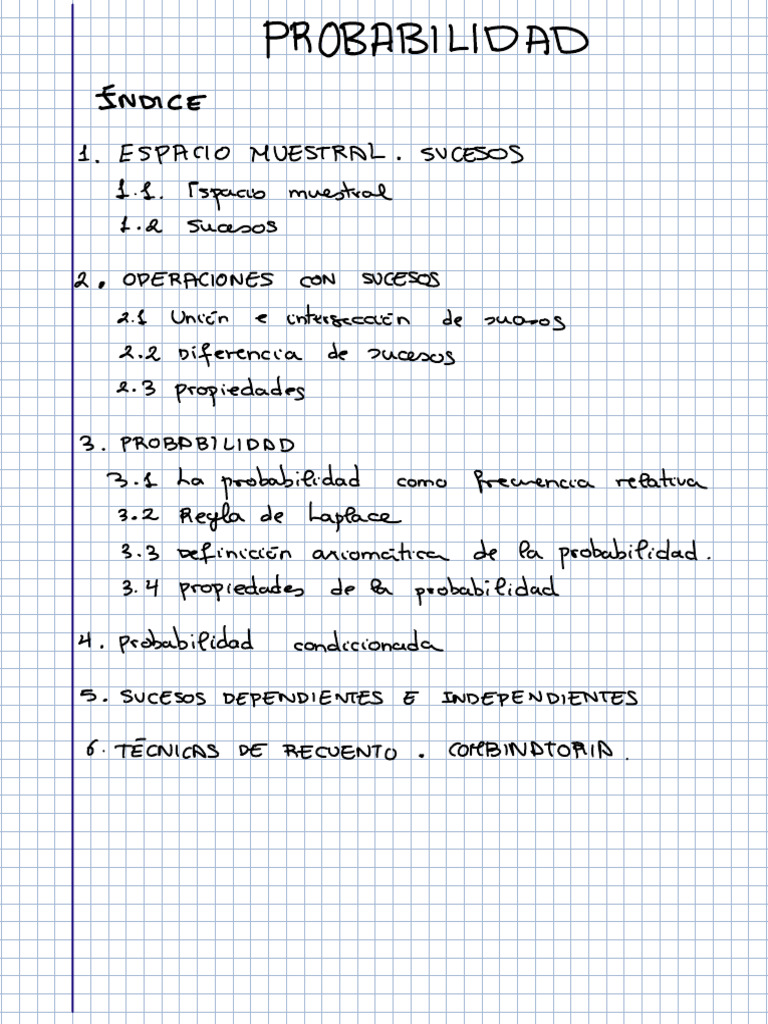 PROBABILIDAD
ÍNDICE
1. ESPACIO MUESTRAL. SUCESOS
1.1. Espacio muestral
1.2 Sucesos
2. OPERACIONES CON SUCESOS
2.1 Unión e intersección de sucesos
2.2 Diferencia de sucesos
2.3 propiedades
3. PROBABILIDAD
3.1 La probabilidad como frecuencia relativa
3.2 Regla de Laplace
3.3 Definición axiomática de la probabilidad.
3.4 propiedades de la probabilidad
4. probabilidad condicionada
5. SUCESOS DEPENDIENTES E INDEPENDIENTES
6. TÉCNICAS DE RECUENTO. COMBINATORIA.